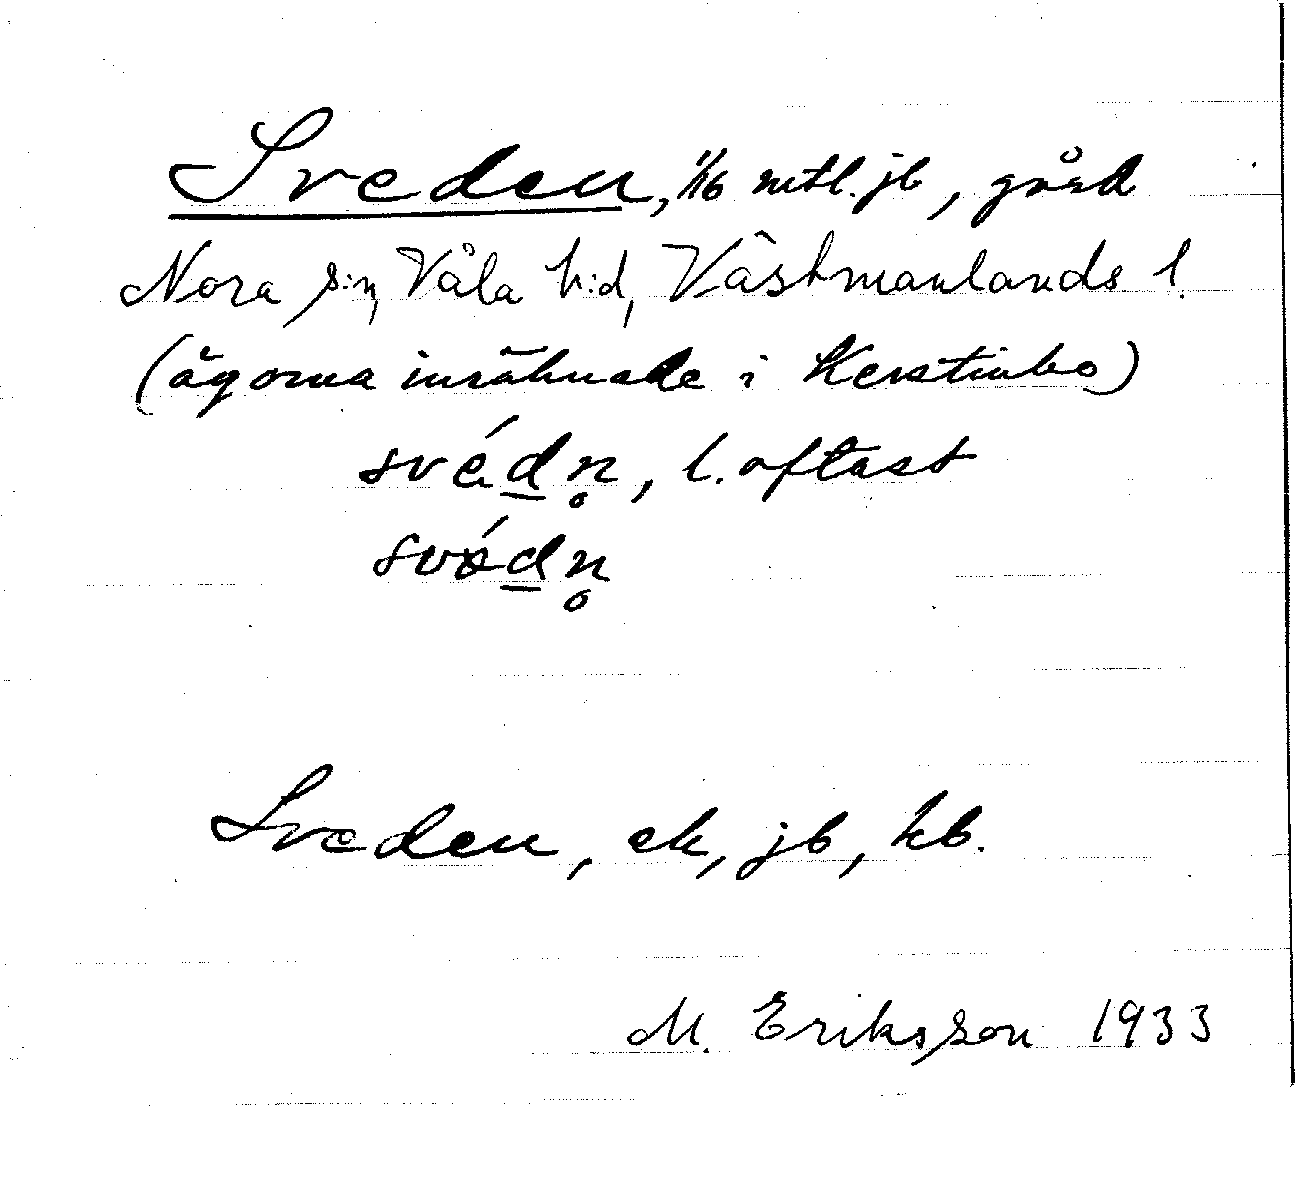 Sveden, 1/16 mtl. jb, gård
Nora s:n, Våla h:d, Västmanlands l.
(ägorna inräknade i Kerstinbo)
své̱dn̥, l. oftast
svǿdn̥
Sveden, ek, jb, kb.
M. Eriksson 1933